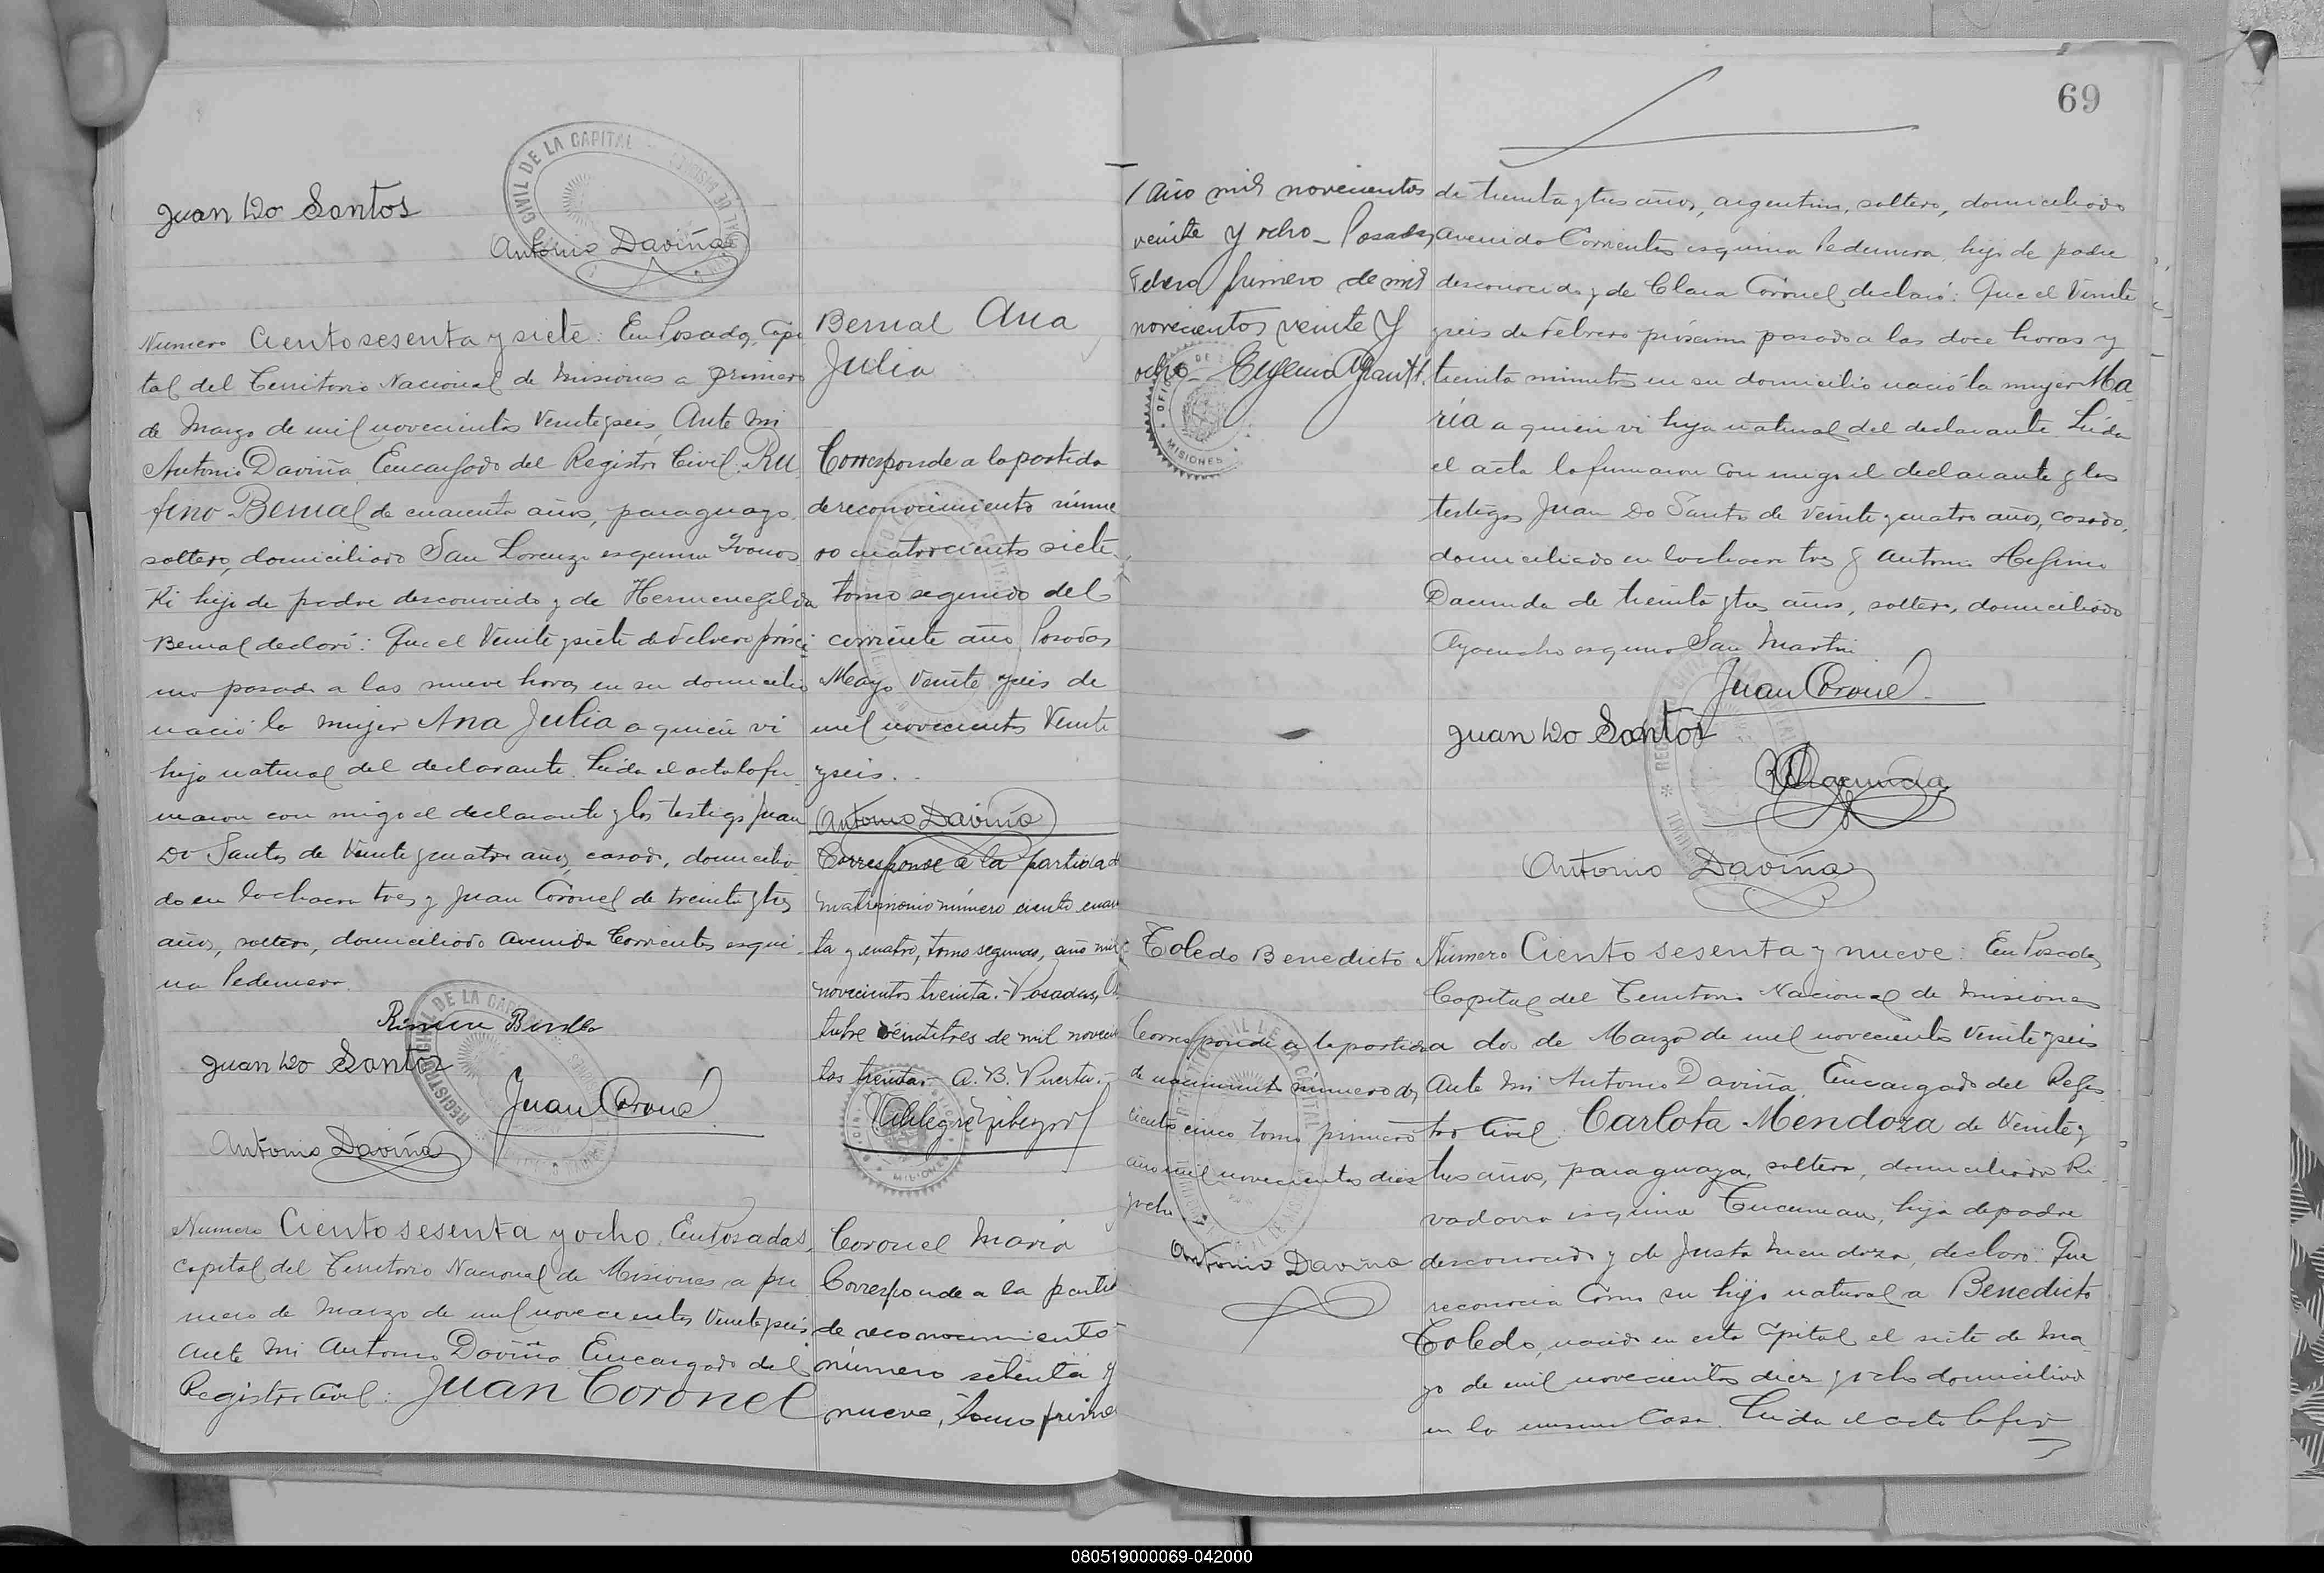 Juan Do Santos
REGISTRO CIVIL DE LA CAPITAL
Antonio Daviña
Numero Ciento sesenta y siete: En Posadas, Capi
tal del Territorio Nacional de Misiones a primero
de Marzo de mil novecientos Veinte y seis, Ante mi
Antonio Daviña Encargado del Registro Civil. Ru
fino Bernal de cuarenta años, paraguayo,
soltero, domiciliado San Lorenzo esquina Ivanos
ki hijo de padre desconocido y de Hermenegilda
Bernal declaró: Que el Veinte y siete de Febrero próxi
mo pasado a las nueve horas en su domicilio
nació la mujer Ana Julia a quien vi
hija natural del declarante. Leida el acta la fir
maron con migo el declarante y los testigos Juan
Do Santos de Veinte y cuatro años, casado, domicilia
do en la chacra tres y Juan Coronel de treinta y tres
años, soltero, domiciliado Avenida Corrientes esqui
na Pedernera
Juan Do Santos
Juan Coronel
Antonio Daviña
Numero Ciento sesenta y ocho. En Posadas,
Capital del Territorio Nacional de Misiones a pri
mero de Marzo de mil novecientos Veinte y seis
Ante mi Antonio Daviña Encargado del
Registro Civil: Juan Coronel
Bernal Ana
Julia
Corresponde a la partida
de reconocimiento núme
ro cuatrocientos siete
tomo segundo del
corriente año, Posadas
Mayo Veinte y seis de
mil novecientos Veinte
y seis.
Antonio Daviña
Corresponde a la partida de
matrimonio número ciento cuaren
ta y cuatro, tomo segundo, año mil
novecientos treinta.- Posadas, Oc
tubre veintitres de mil novecien
tos treinta.- A. B. Puerta.-
MISIONES
Coronel Maria
Corresponde a la partida
de reconocimiento
número setenta y
nueve, tomo primero
69
año mil novecientos
veinte y ocho - Posadas,
Febrero primero de mil
novecientos veinte y
ocho
MISIONES
de treinta y tres años, argentino, soltero, domiciliado
Avenida Corrientes esquina Pedernera, hijo de padre
desconocido y de Clara Coronel, declaró: Que el Veinte
y seis de Febrero próximo pasado a las doce horas y
treinta minutos en su domicilio nació la mujer Ma
ria a quien vi hija natural del declarante. Leida
el acta la firmaron con migo el declarante y los
testigos Juan Do Santos de Veinte y cuatro años, casado,
domiciliado en la chacra tres y Antonio Higinio
Dacunda de treinta y tres años, soltero, domiciliado
Ayacucho esquina San Martin
Juan Coronel
Juan Do Santos
Antonio Daviña
Toledo Benedicto
Corresponde a la partida
de nacimiento número dos
cientos cinco tomo primero
año mil novecientos diez
y ocho
Antonio Daviña
Número Ciento sesenta y nueve: En Posadas,
Capital del Territorio Nacional de Misiones
a dos de Marzo de mil novecientos Veinte y seis
Ante mi Antonio Daviña Encargado del Regis
tro Civil: Carlota Mendoza de Veinte y
tres años, paraguaya, soltera, domiciliada Ri
vadavia esquina Tucuman, hija de padre
desconocido y de Justa Mendoza, declaró: Que
reconocia Como su hijo natural a Benedicto
Toledo, nacido en esta Capital el siete de Ma
yo de mil novecientos diez y ocho domiciliado
en la misma Casa. Leida el acta la fir
080519000069-042000